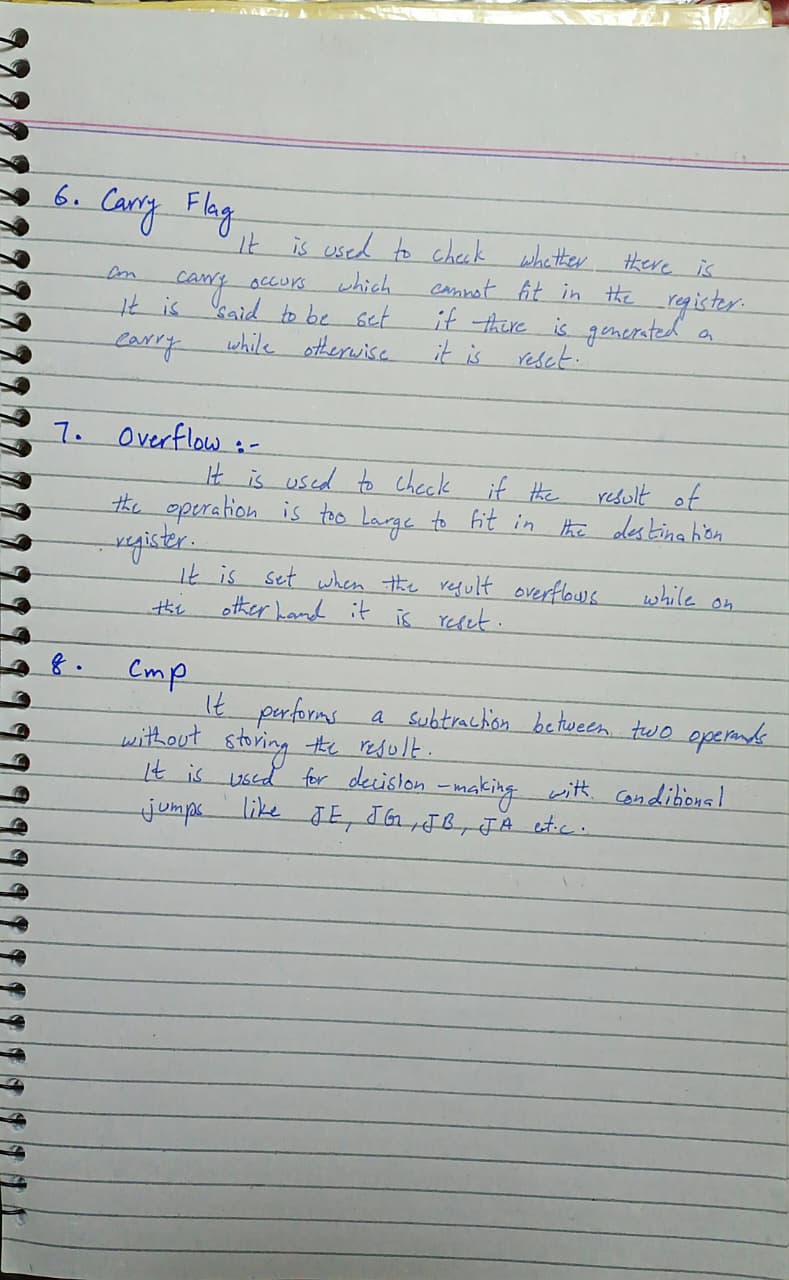 6. Carry Flag
It is used to check whether there is
an carry occurs which cannot fit in the register.
It is said to be set if there is generated a
carry while otherwise it is reset.
7. Overflow :-
It is used to check if the result of
the operation is too Large to fit in the destination
register.
It is set when the result overflows while on
the other hand it is reset.
8. Cmp
It performs a subtraction between two operands
without storing the result.
It is used for decision-making with conditional
jumps like JE, JG, JB, JA etc.